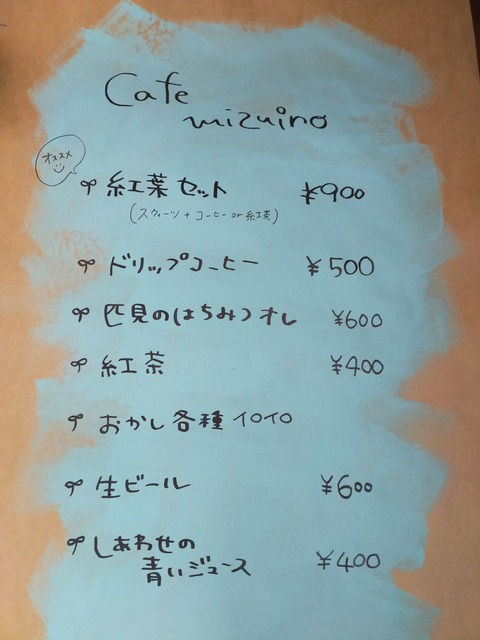 Cafe
mizuino
オススメ
紅葉セット ¥900
(スウィーツ + コーヒー or 紅茶)
ドリップコーヒー ¥500
匹見のはちみつオレ ¥600
紅茶 ¥400
おかし各種 イロイロ
生ビール ¥600
しあわせの
青いジュース ¥400